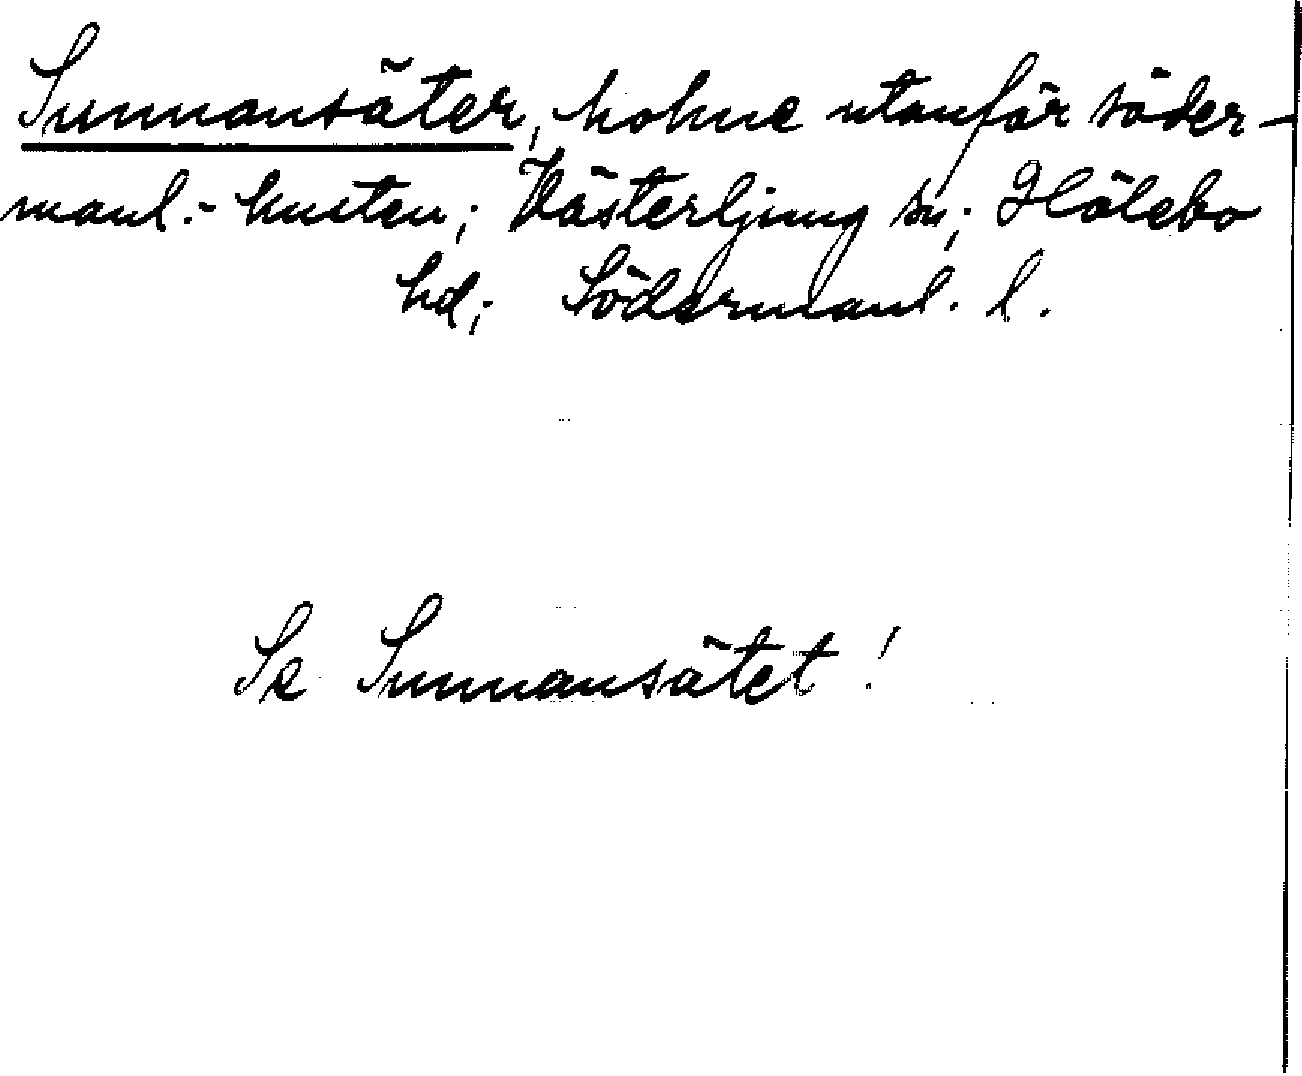 Sunnansäter, holme utanför söder-
manl.-kusten; Västerljung sn; Hölebo
hd; Södermanl. l.
Se Sunnansätet!